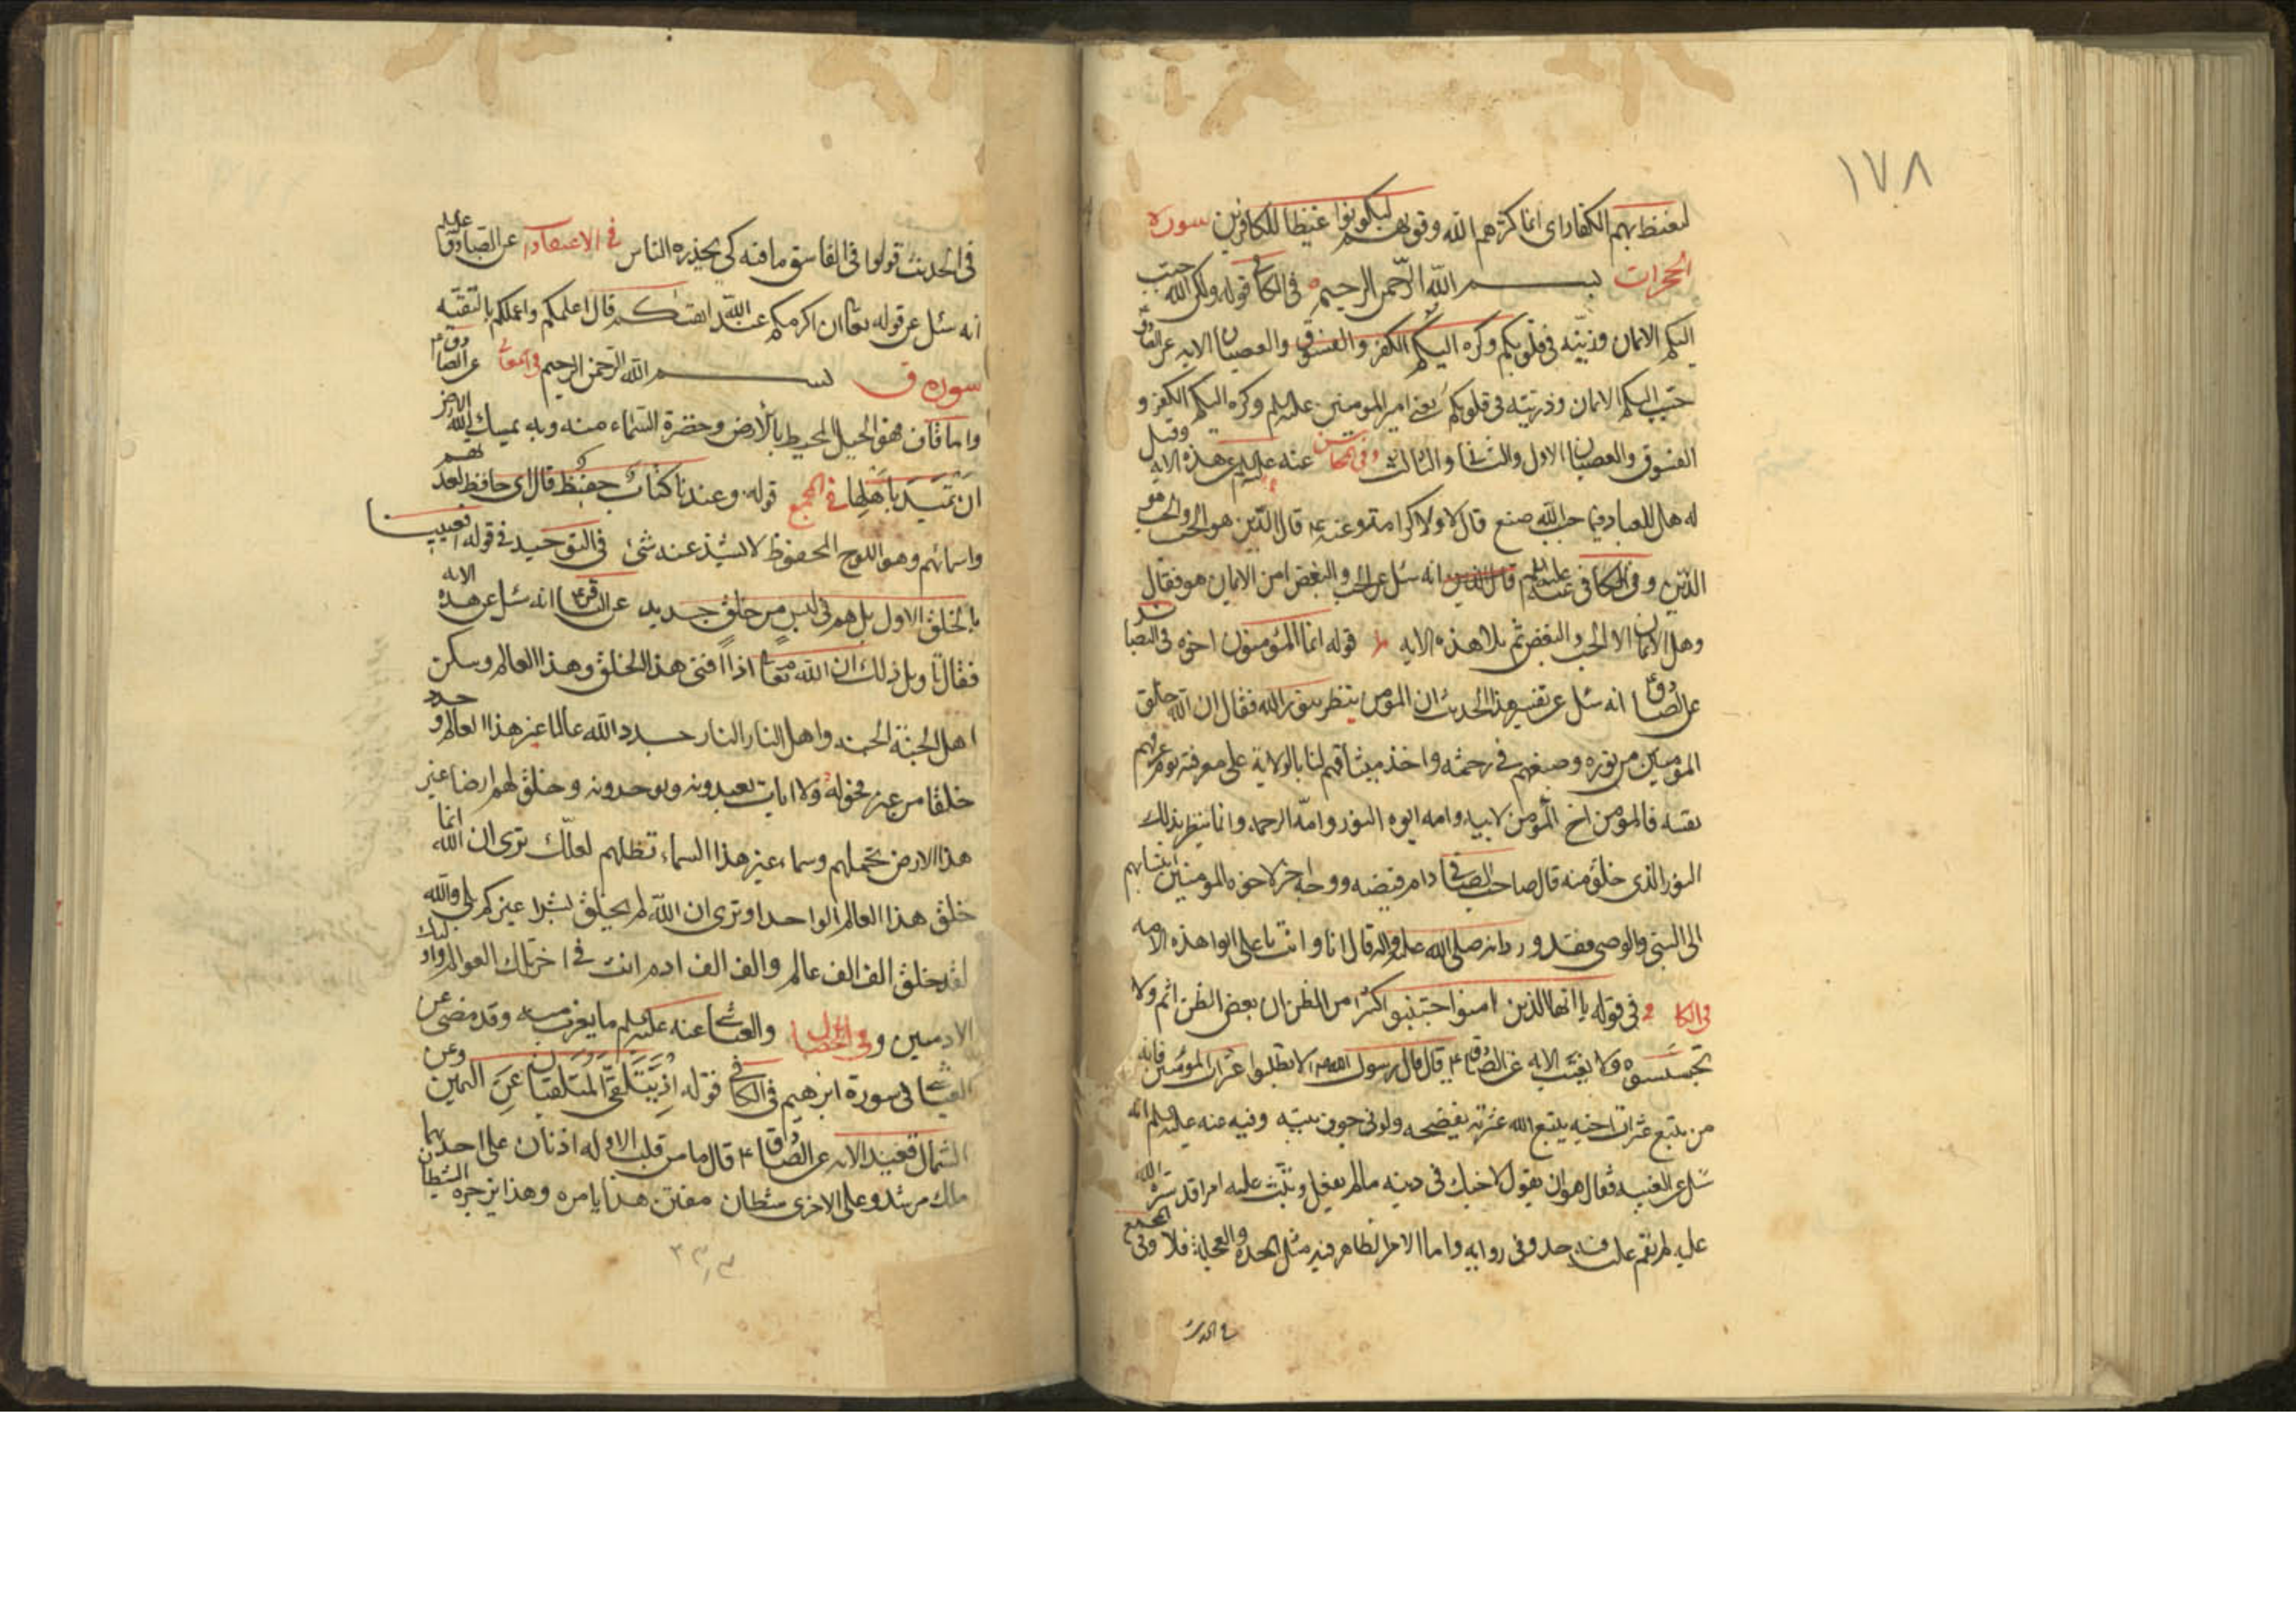 ١٧٨
ليغيظ بهم الكفار اى انما كثرهم الله وقويهم ليكونوا غيظا للكافرين سورة
الحجرات بسم الله الرحمن الرحيم فى الكافى قوله ولكن الله حبب
اليكم الايمان وزينه فى قلوبكم وكره اليكم الكفر والفسوق والعصيان الايه عن الصادق
حبب اليكم الايمان وزينه فى قلوبكم يعنى امير المومنين عليه السلم وكره اليكم الكفر و
الفسوق والعصيان الاول والثانى والثالث وفى المحاسن عنه عليه السلم عن هذه الايه وقيل
له هل للعباد فيما حبب الله صنع قال لا ولا كرامة وعنه ع قال الدين هو الحب والحب هو
الدين وفى الكافى عنه عليه السلم انه سئل عن الحب والبغض امن الايمان هو فقال
وهل الايمان الا الحب والبغض ثم تلا هذه الايه قوله انما المؤمنون اخوة فى البصائر
عن الصادق انه سئل عن تفسير هذا الحديث ان المؤمن ينظر بنور الله فقال ان الله خلق
المومنين من نوره وصبغهم فى رحمته واخذ ميثاقهم لنا بالولاية على معرفته يوم عرفهم
نفسه فالمؤمن اخ المؤمن لابيه وامه ابوه النور وامه الرحمه وانما ينظر بذلك
النور الذى خلق منه قال صاحب الصافى دام فيضه ووجه اخر لاخوه المومنين انتسابهم
الى النبى والوصى فقد ورد انه صلى الله عليه واله قال انا وانت يا على ابوا هذه الامه
فى الكافى فى قوله يا ايها الذين امنوا اجتنبوا كثيرا من الظن ان بعض الظن اثم ولا
تجسسوا ولا يغتب الايه عن الصادق ع قال قال رسول الله ص لا تطلبوا عثرات المؤمنين فانه
من يتبع عثرات اخيه يتبع الله عثرته يفضحه ولو فى جوف بيته وفيه عنه عليه السلم انه
سئل عن الغيبه فقال هو ان يقول لاخيك فى دينه مالم يفعل وتبث عليه امرا قد ستره الله
عليه لم يقم عليه فيه حد وفى روايه واما الامر الظاهر فيه مثل الحده والعجلة فلا وفى المجمع
فى الحديث
فى الحديث قولوا فى الفاسق ما فيه كى يحذره الناس فى الاعتقادات عن الصادق عليه السلم
انه سئل عن قوله تعالى ان اكرمكم عند الله اتقيكم قال اعلمكم واعملكم بالتقيه
سورة ق بسم الله الرحمن الرحيم فى المعانى عن الصادق ع
واما ق فهو الجبل المحيط بالارض وخضرة السماء منه وبه يمسك الله الارض
ان تميد باهلها فى المجمع قوله وعندنا كتاب حفيظ قال اى حافظ لعدتهم
واسمائهم وهو اللوح المحفوظ لا يشذ عنه شئ فى التوحيد فى قوله افعيينا
بالخلق الاول بل هم فى لبس من خلق جديد عن الباقر ع انه سئل عن هذه الايه
فقال تاويل ذلك ان الله تعالى اذا افنى هذا الخلق وهذا العالم وسكن
اهل الجنة الجنه واهل النار النار جدد الله عالما غير هذا العالم و جدد
خلقا من غير فحولة ولا اناث يعبدونه ويوحدونه وخلق لهم ارضا غير
هذا الارض تحملهم وسماء غير هذا السماء تظلهم لعلك ترى ان الله انما
خلق هذا العالم الواحد او ترى ان الله لم يخلق بشرا غيركم بلى والله
لقد خلق الف الف عالم والف الف ادم انت فى اخر تلك العوالم واولئك
الادميين وفى الخصال والعياشى عنه عليه السلم ما يقرب منه وقد مضى عن
العياشى فى سورة ابرهيم فى الكافى قوله اذ يتلقى المتلقيان عن اليمين وعن
الشمال قعيد الايه عن الصادق ع قال ما من قلب الا وله اذنان على احديهما
ملك مرشد وعلى الاخرى شيطان مفتن هذا يامره وهذا يزجره الشيطان